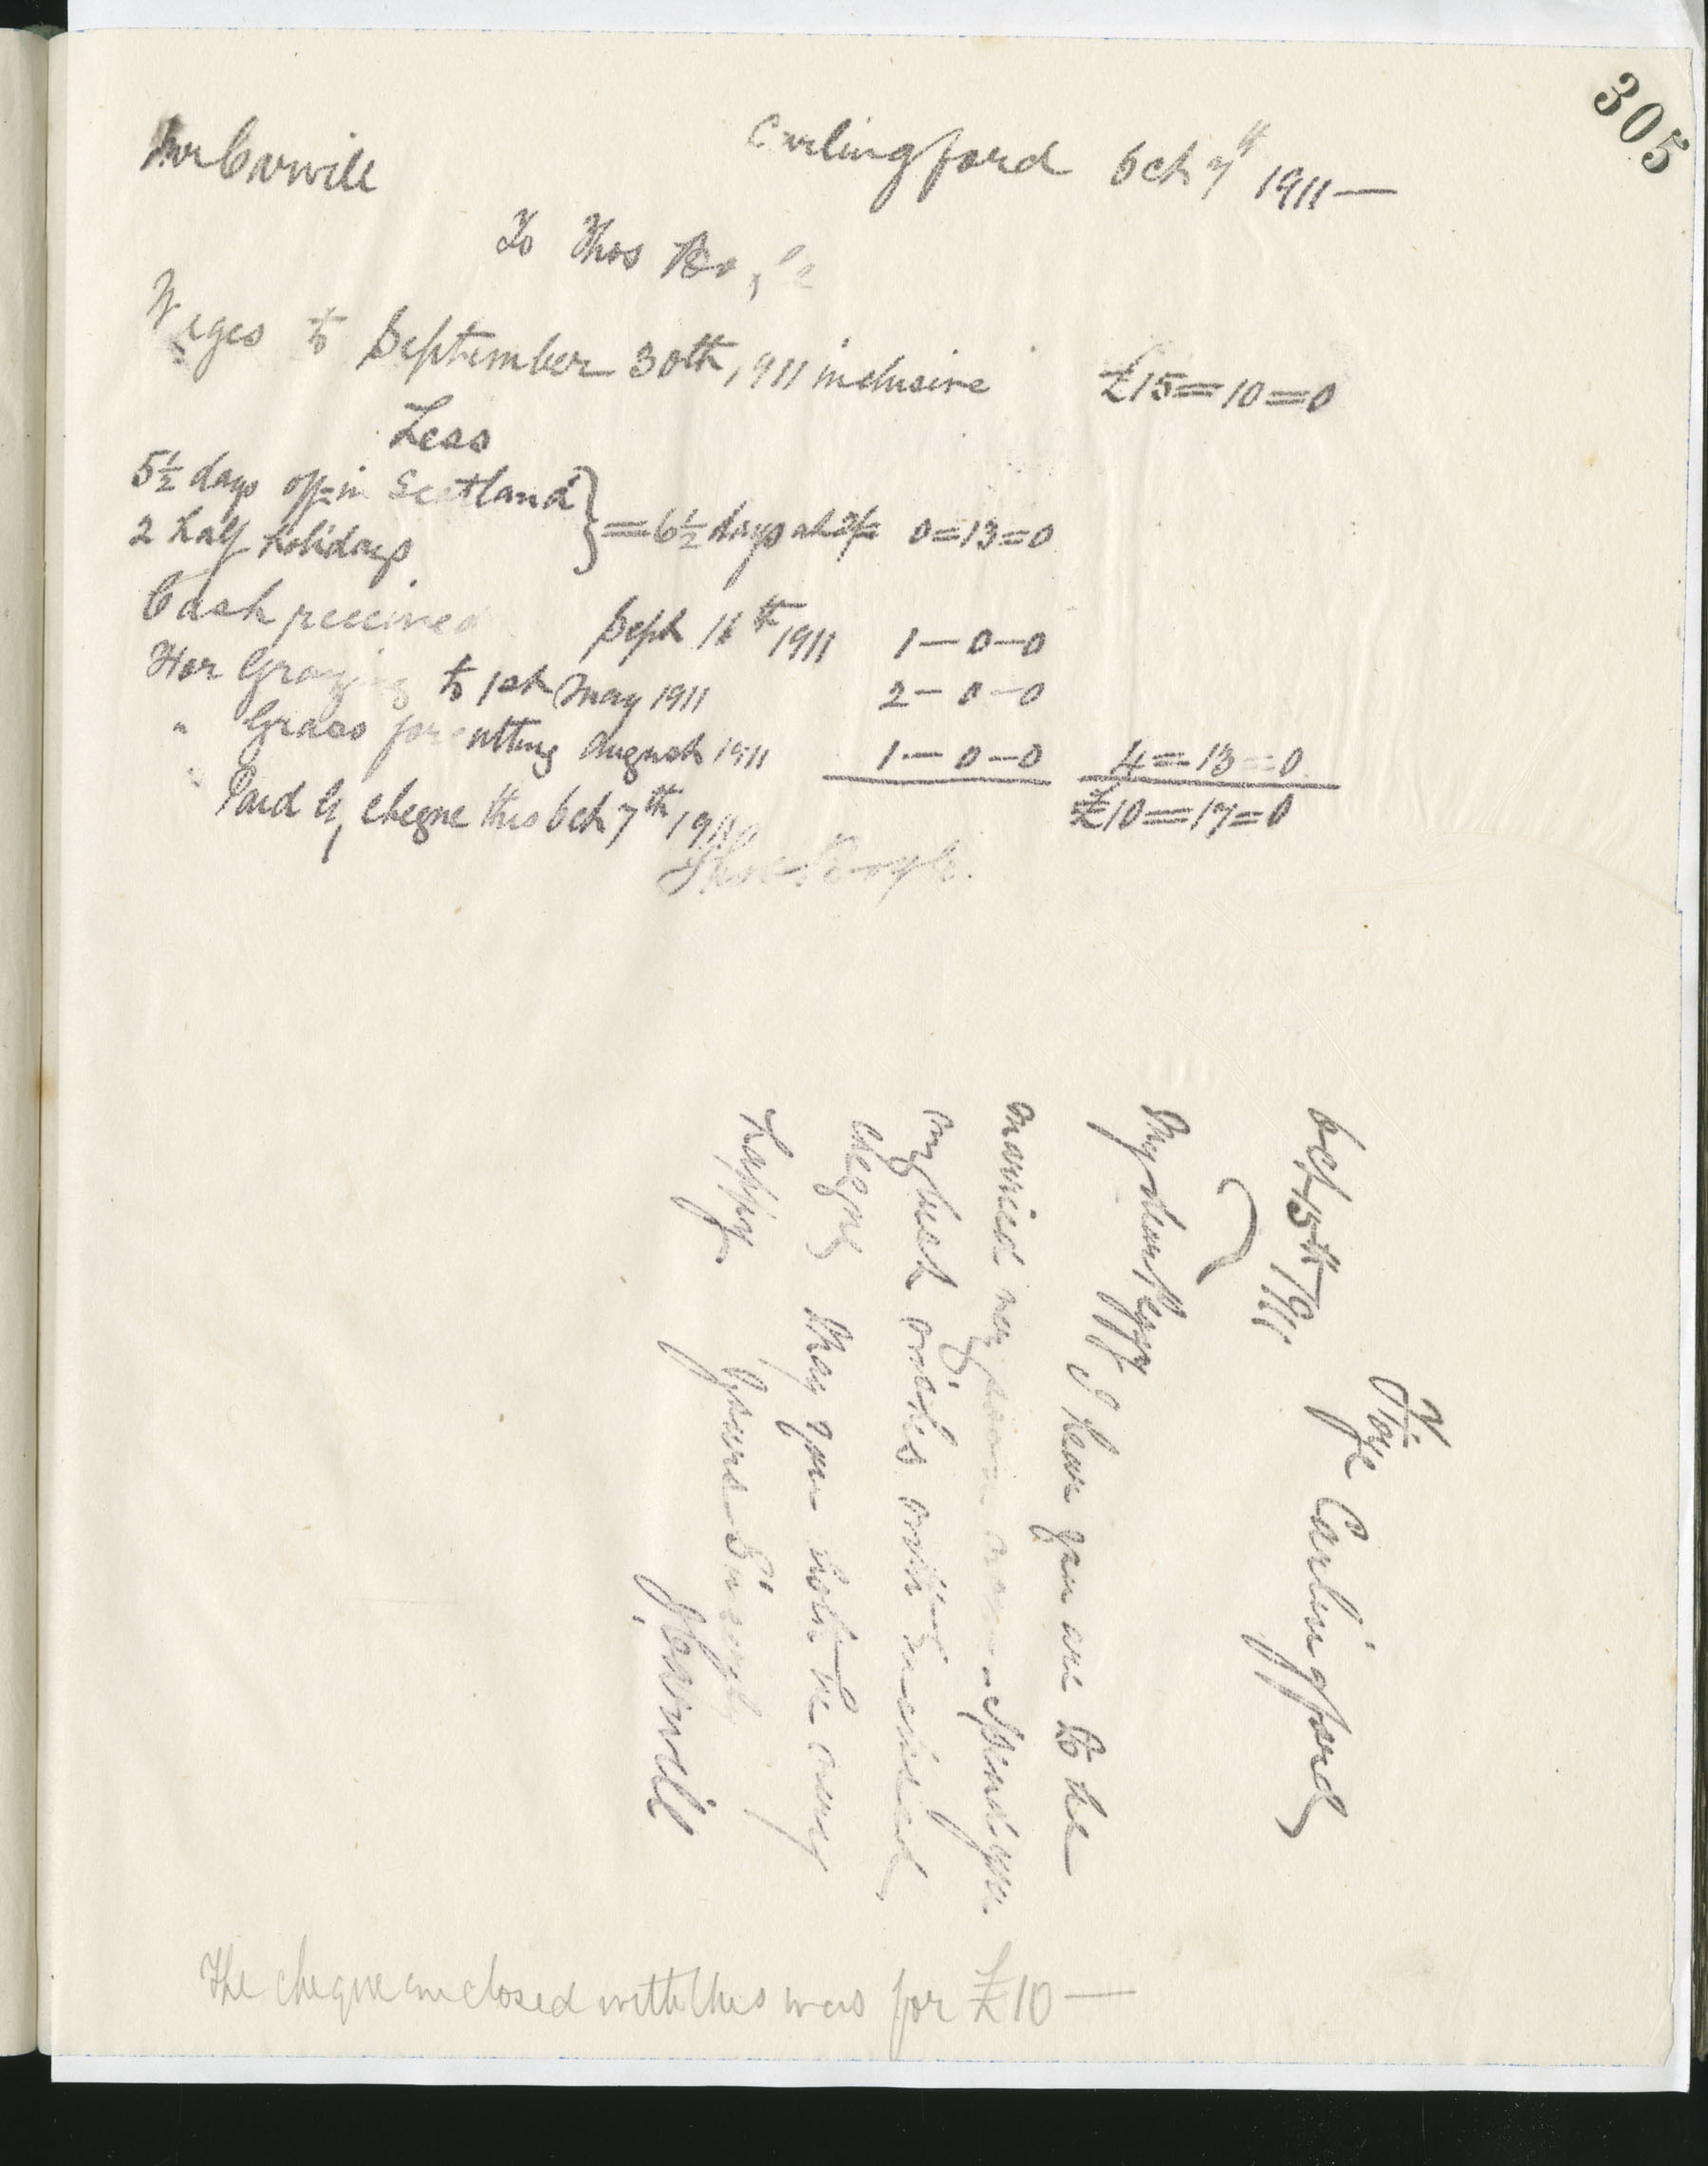 305
Mr Carvill
Carlingford Oct 7th 1911 —
To Thos Boyle
Wages to September 30th, 1911 inclusive £15=10=0
Less
5½ days off in Scotland
2 half holidays } = 6½ days at 2/= 0=13=0
Cash received Sept 16th 1911 1-0-0
For Grazing to 1st May 1911 2-0-0
" Grass for cutting August 1911 1-0-0 4=13=0
Paid by cheque this Oct 7th 1911 £10=17=0
Thos Boyle.
Carlingford
Oct 15th 1911
My dear Peggy
I hear you are to be
married very soon I send you
my best wishes with enclosed
cheque May you both be very
happy.
Yours Sincerely
Carvill
The cheque enclosed with this was for £10 —